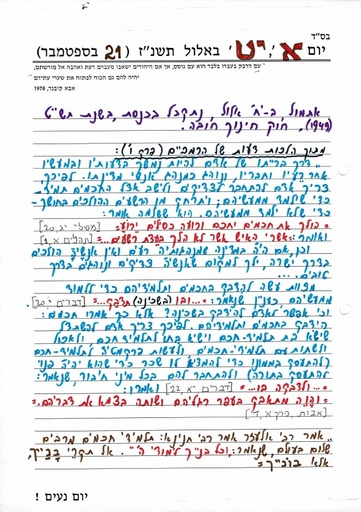 בס"ד
יום א', י"ט באלול תשנ"ז (21 בספטמבר)
עם הדבק בעברו בלבד הוא עם גוסס, אך אם היהודים ישאבו מעברם דעת ואהבה אל מורשתם,
יהיה להם גם הכוח לפתוח את שערי עתידם
אבא קובנר, 1978
אתמול, ב-י"ח אלול, נתקבל בכנסת, בשנת תש"ט
(1949), חוק חינוך חובה.
מתוך הלכות דעות של הרמב"ם (פרק ו'):
"דרך ברייתו של אדם להיות נמשך בדעותיו ובמעשיו
אחר רעיו וחבריו, ונוהג כמנהג אנשי מדינתו. לפיכך,
צריך אדם להתחבר לצדיקים ולישב אצל החכמים תמיד-
כדי שילמד ממעשיהם; ויתרחק מן הרשעים ההולכים בחושך-
כדי שלא ילמד ממעשיהם. הוא ששלמה אומר:
=הולך את חכמים יחכם ורועה כסילים ירוע= [משלי יג, 20]
ואומר: =אשרי האיש אשר לא הלך בעצת רשעים...= [תהלים א, 1]
וכן, אם היה במדינה שמנהגותיה רעים ואין אנשיה הולכים
בדרך ישרה, ילך למקום שאנשיה צדיקים ונוהגים בדרך
טובים. ...
מצוות עשה להידבק בחכמים ותלמידיהם כדי ללמוד
ממעשיהם, כעניין שנאמר: =...ובו (בשכינה) תדבק...= [דברים י', 20].
וכי אפשר לאדם להידבק בשכינה? אלא כך אמרו חכמים:
הידבק בחכמים ותלמידיהם. לפיכך צריך אדם להשתדל
שישא בת תלמיד-חכם וישיא בתו לתלמיד חכם, ולאכול
ולשתות עם תלמידי-חכמים, ולעשות פרקמטיא לתלמיד-חכם
(להתעסק בממונו כדי להמציא לו שכר כדי שהוא יהיה פנוי
להתעסק בתורה) ולהתחבר להם בכל מיני חיבור, שנאמר:
=...ולדבקה בו...= [דברים יא, 22] ואמרו:
=והוה מתאבק בעפר רגליהם ושותה בצמא את דבריהם=
[אבות, פרק א, ד']
"אמר רבי אלעזר אמר רבי חנינא: תלמידי חכמים מרבים
שלום בעולם, שנאמר: וכל בנייך לימודי ה'". אל תקרי בנייך,
אלא בונייך=
יום נעים !